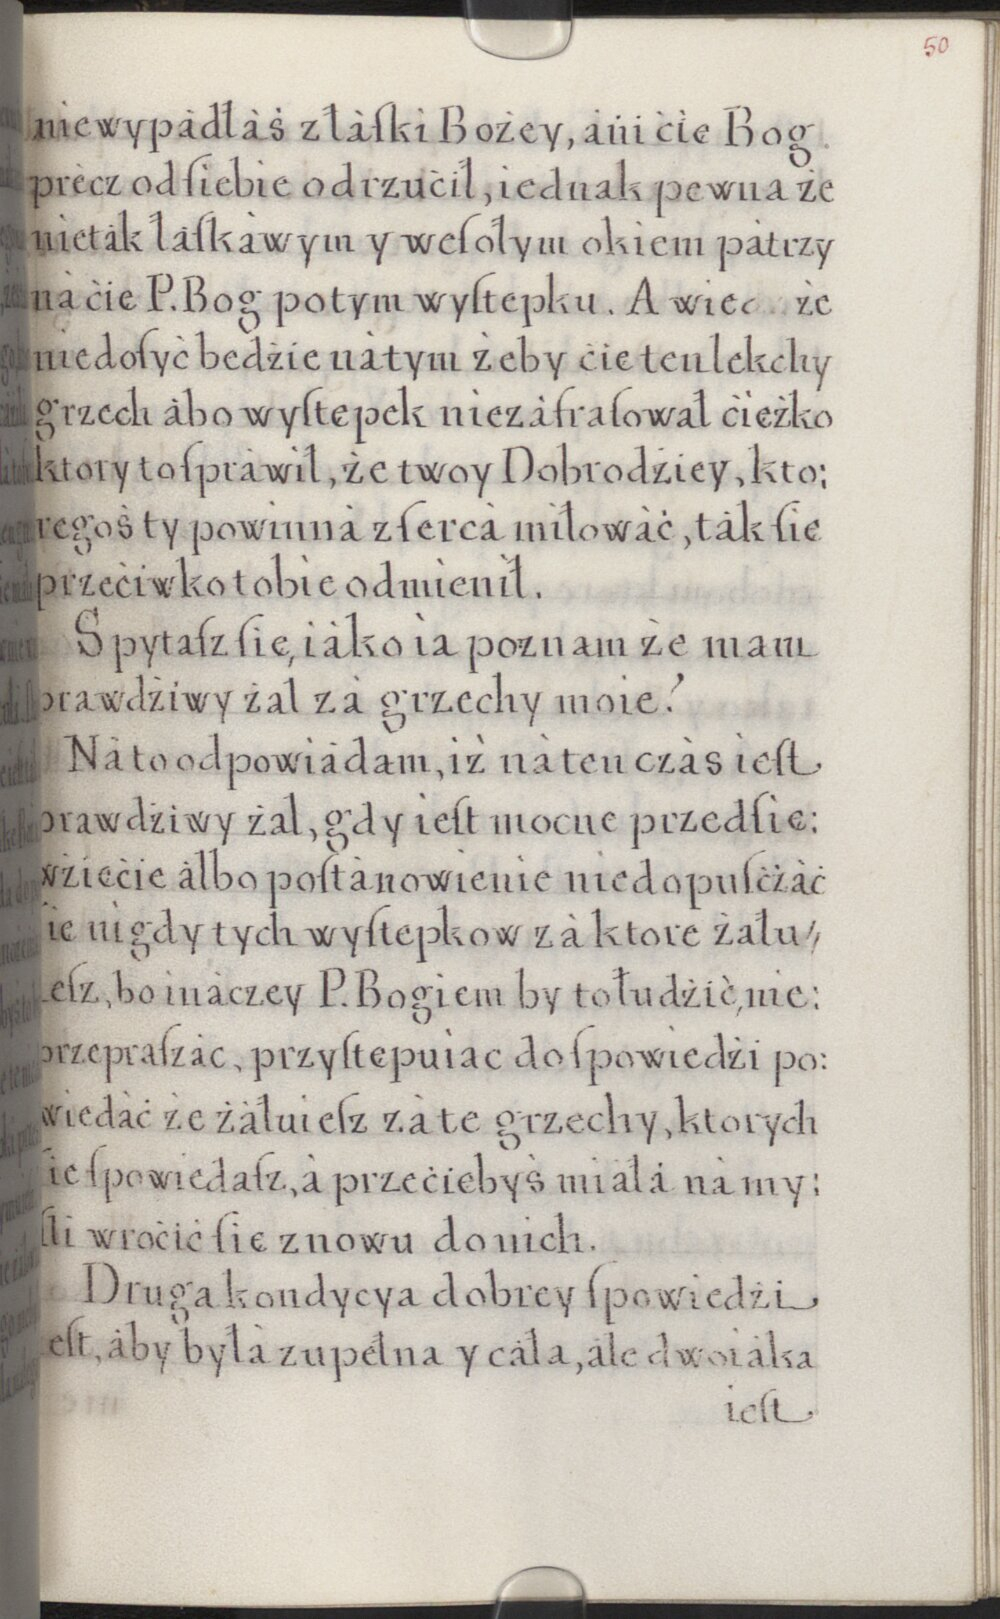 50
niewypàdłàṡ z łàſki Bożey, àni ċie Bog
precz od ſiebie odrzuċił, iednak pewna że
nieták łáſkàwym y weſołym okiem pátrzy
nà ċie P. Bog potym wyſtepku. A wiec że
niedoſyċ bedżie nàtym żeby ċie ten lekchy
grzech àbo wyſtepek niezáfraſował ċieżko
ktory to ſpràwił, że twoy Dobrodżiey, kto:
regoṡ ty powinnà z ſercà miłowàċ, ták ſie
przeċiwko tobie odmienił.
Spytaſz ſie, iàko ia poznam że mam
prawdżiwy żal zà grzechy moie?
Nàto odpowiàdam, iż nàten czàs ieſt
prawdżiwy żal, gdy ieſt mocne przedſie:
wżieċie àlbo poſtànowienie niedopuſċżàċ
ſie nigdy tych wyſtepkow zà ktore żału⸗
ieſz, bo inàczey P. Bogiem by to łudżiċ, nie:
przepraſzàc, przyſtepuiac do ſpowiedżi po:
wiedàċ że żàłuieſz zà te grzechy, ktorych
ſie ſpowiedaſz, à przeċiebyṡ miàłà nà my:
ſli wroċiċ ſie znowu do nich.
Druga kondycya dobrey ſpowiedżi
ieſt, àby byłà zupełna y càła, àle dwoiàka
ieſt